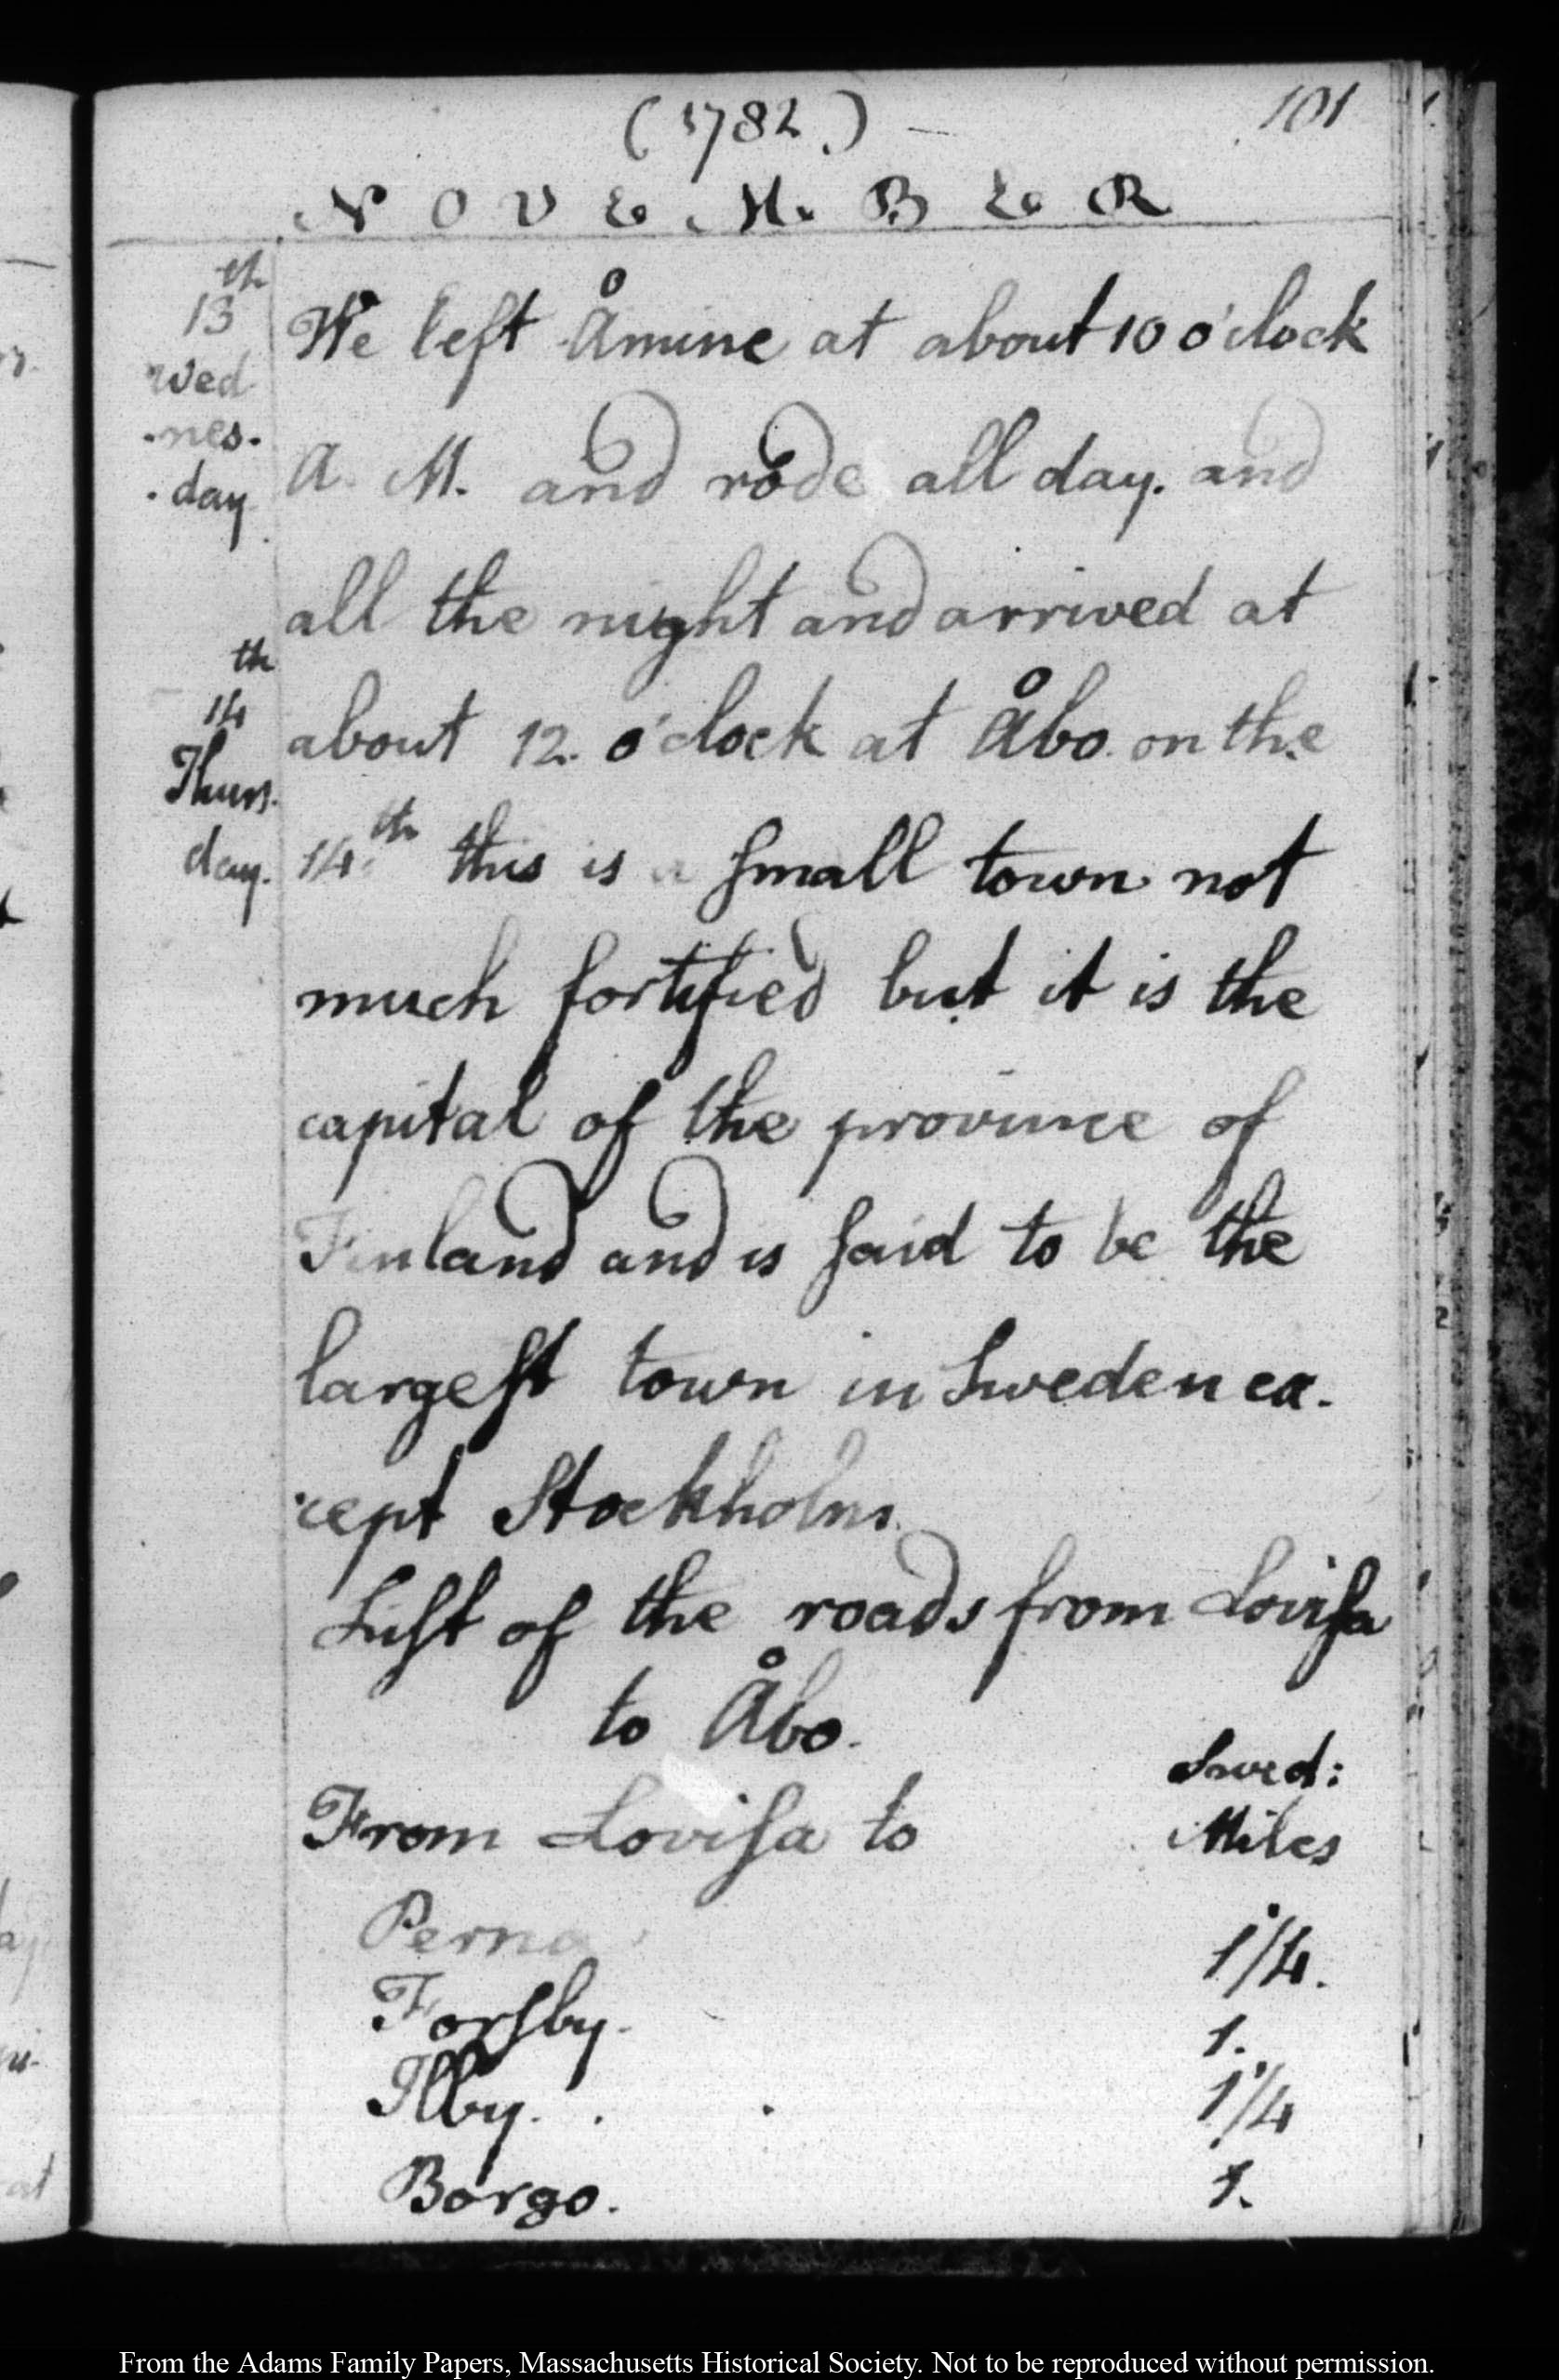 (1782.) — 101
NOVEMBER
13th Wed-nes-day We left Åmine at about 10 o'clock
A. M. and rode all day. and
all the night and arrived at
14th Thurs-day. about 12. o'clock at Åbo. on the
14th this is a small town not
much fortified but it is the
capital of the province of
Finland and is said to be the
largest town in Sweden ex-
cept Stockholm.
List of the roads from Lovisa
to Åbo.
From Lovisa to Swed: Miles
Perno 1/4.
Forsby. 1.
Ilby. 1 1/4
Borgo. 1.
From the Adams Family Papers, Massachusetts Historical Society. Not to be reproduced without permission.